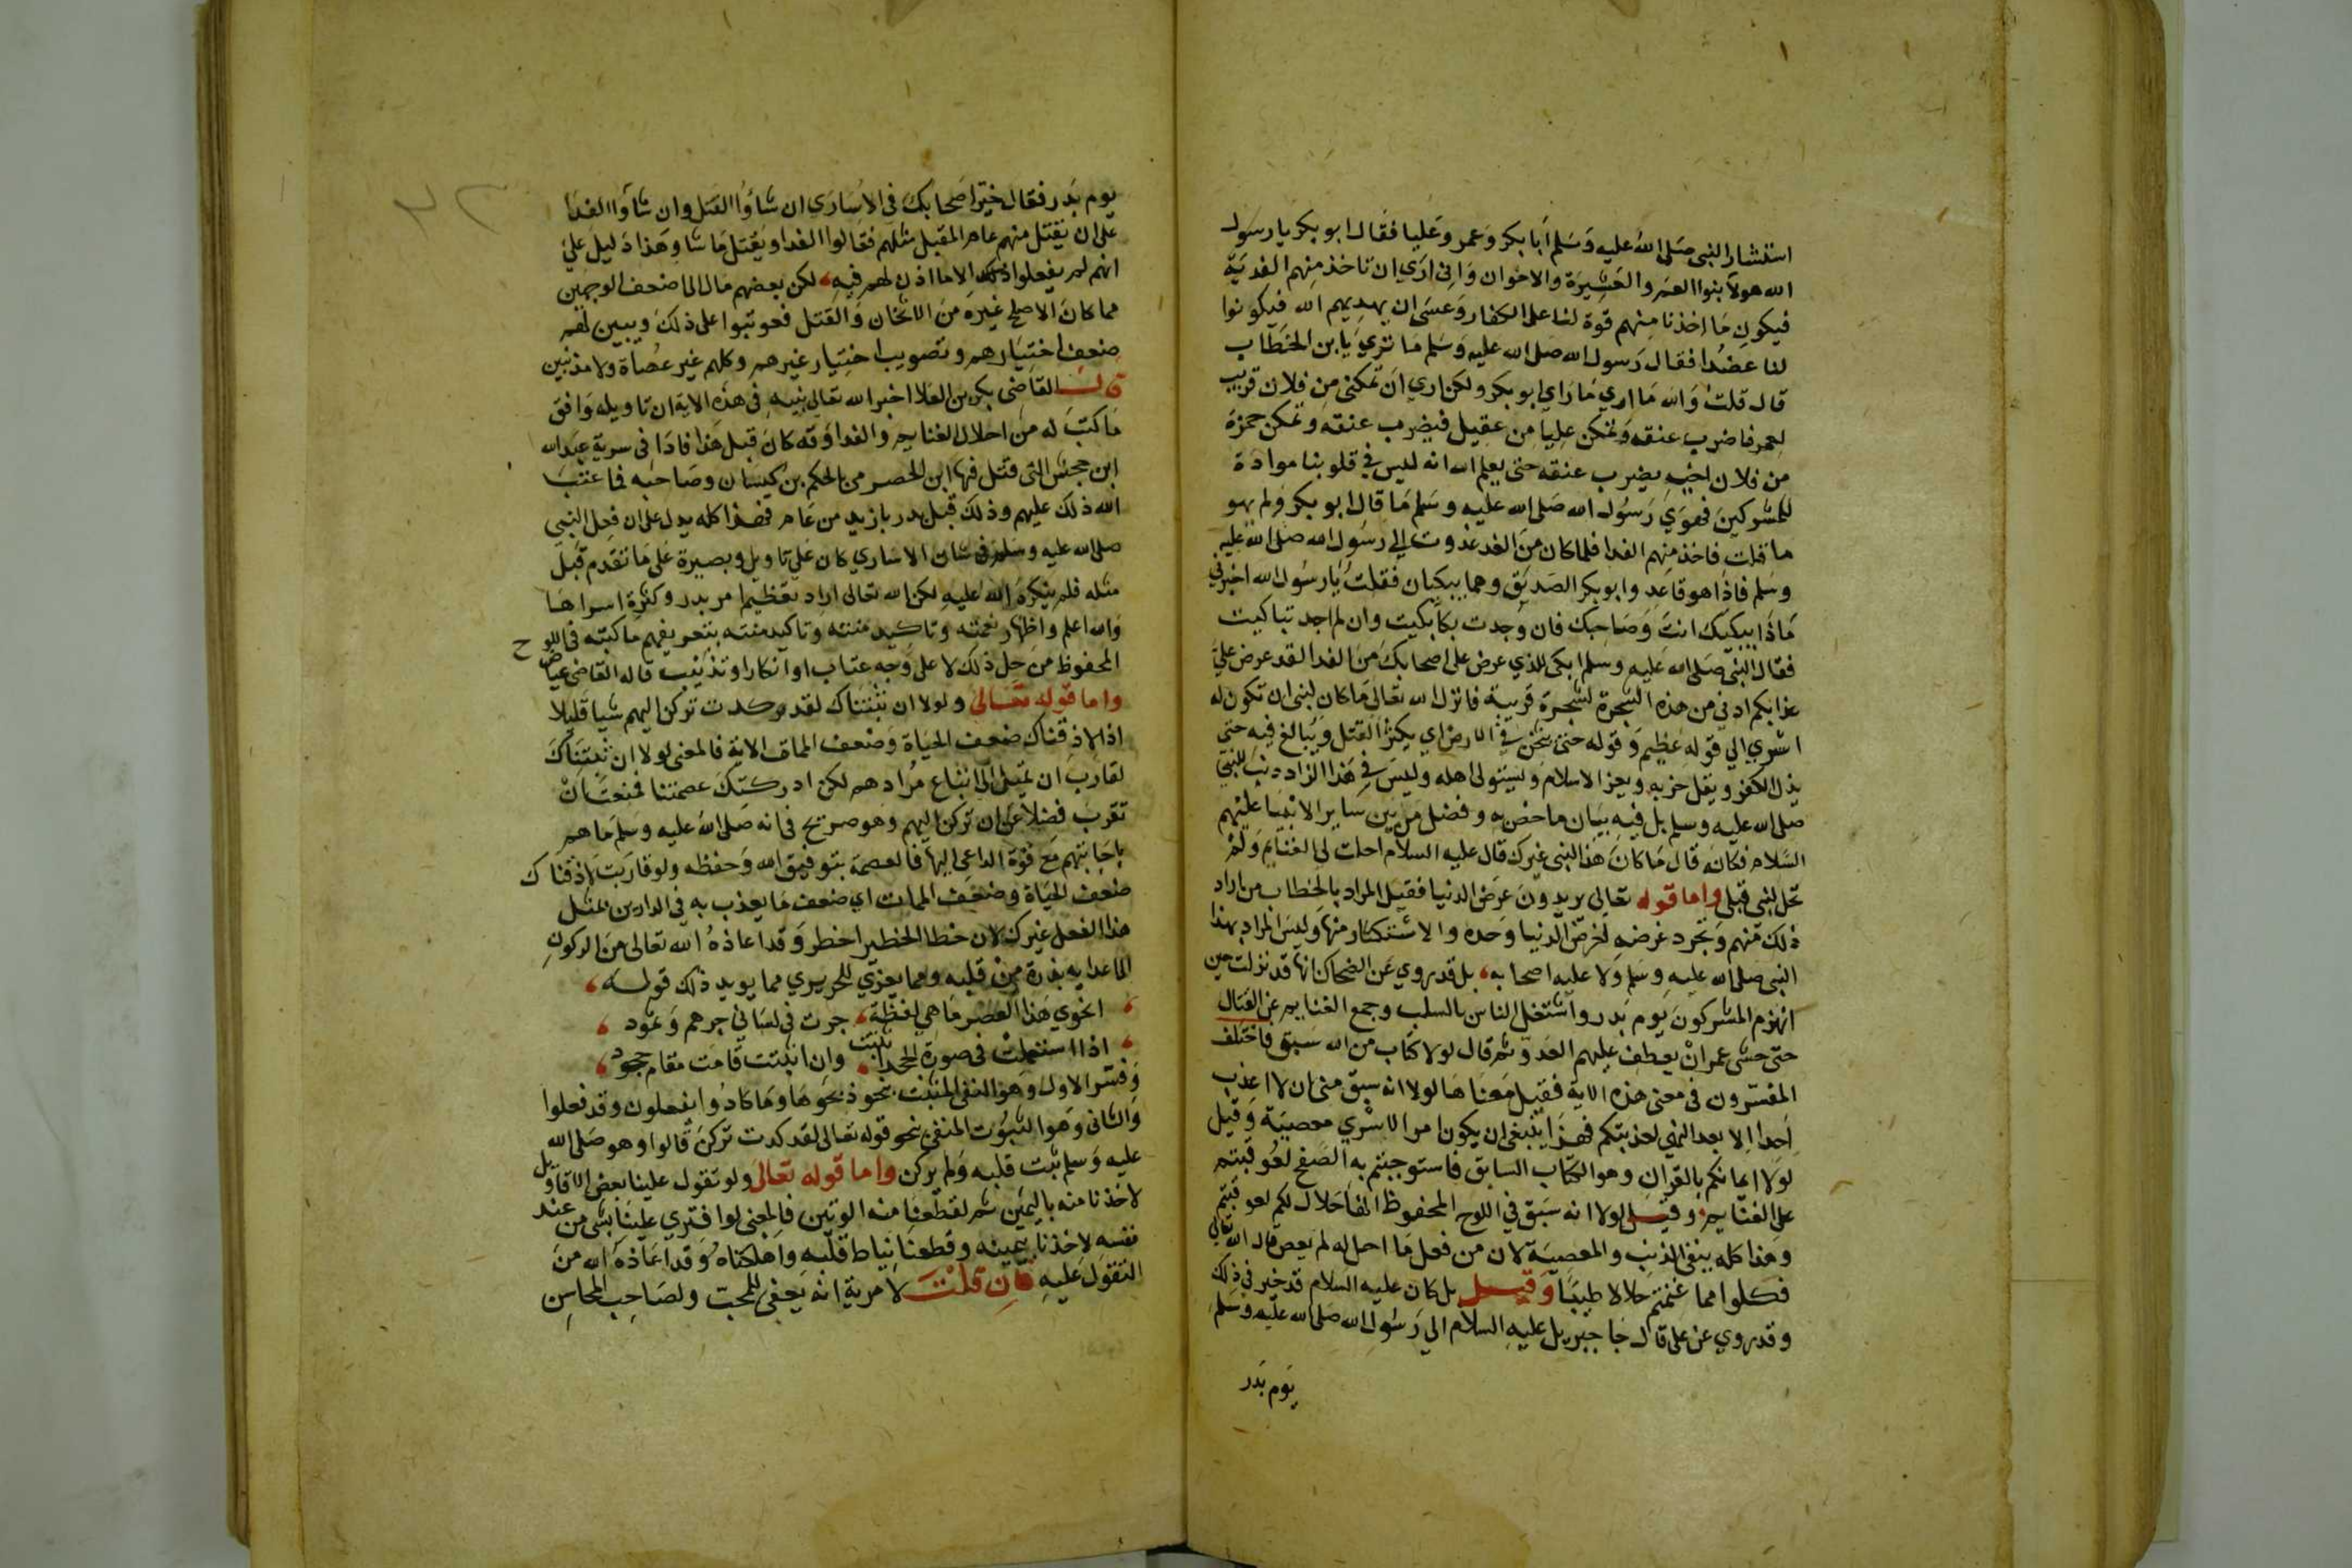 استشار النبي صلى الله عليه وسلم أبا بكر وعمر وعليا فقال ابو بكر يا رسول
الله هولآ بنوا العم والعشيرة والاخوان واني ارى ان تاخذ منهم الفدية
فيكون ما اخذنا منهم قوة لنا على الكفار وعسى ان يهديهم الله فيكونوا
لنا عضدا فقال رسول الله صلى الله عليه وسلم ما ترى يا ابن الخطاب
قال قلت والله ما اري ما راي ابو بكر ولكن اري ان تمكنني من فلان قريب
لعمر فاضرب عنقه وتمكن عليا من عقيل فيضرب عنقه وتمكن حمزة
من فلان اخيه يضرب عنقه حتى يعلم الله انه ليس في قلوبنا موادة
للمشركين فهوي رسول الله صلى الله عليه وسلم ما قال ابو بكر ولم يهو
ما قلت فاخذ منهم الفدا فلما كان من الغد غدوت الى رسول الله صلى الله عليه
وسلم فاذا هو قاعد وابو بكر الصديق وهما يبكيان فقلت يا رسول الله اخبرني
ماذا يبكيك انت وصاحبك فان وجدت بكا بكيت وان لم اجد تباكيت
فقال النبي صلى الله عليه وسلم ابكي للذي عرض على اصحابك من الفدا لقد عرض علي
عذابكم ادني من هذه الشجرة لشجرة قريبة فانزل الله تعالى ما كان لنبي ان تكون له
اسري الي قوله عظيم وقوله حتى يثخن في الارض اي يكثر القتل ويبالغ فيه حتى
يذل الكفر ويقل حزبه ويعز الاسلام ويستولى اهله وليس في هذا الزام ذنب للنبي
صلى الله عليه وسلم بل فيه بيان ما خص به وفضل من بين ساير الانبيا عليهم
السلام فكانه قال ما كان هذا لنبي غيرك قال عليه السلام احلت لي الغنايم ولم
تحل لنبي قبلي واما قوله تعالى يريدون عرض الدنيا فقيل المراد بالخطاب من اراد
ذلك منهم وتجرد غرضه لغرض الدنيا وحده والاستكثار منها وليس المراد بهذا
النبي صلى الله عليه وسلم ولا عليه اصحابه، بل قد روي عن الضحاك انها قد نزلت حين
انهزم المشركون يوم بدر واشتغل الناس بالسلب وجمع الغنايم عن القتال
حتى خشي عمر ان يعطف عليهم العدو ثم قال لولا كتاب من الله سبق فاختلف
المفسرون في معنى هذه الاية فقيل معناها لولا انه سبق مني ان لا اعذب
احدا الا بعد النهي لعذبتكم فهذا ينبغي ان يكون امر الاسري معصية وقيل
لولا ايمانكم بالقران وهو الكتاب السابق فاستوجبتم به الصفح لعوقبتم
على الغنايم وقيل لولا انه سبق في اللوح المحفوظ انها حلال لكم لعوقبتم
وهذا كله ينفي الذنب والمعصية لان من فعل ما احل له لم يعص قال الله تعالى
فكلوا مما غنمتم حلالا طيبا وقيل بل كان عليه السلام قد خير في ذلك
وقد روي عن علي قال جا جبريل عليه السلام الي رسول الله صلى الله عليه وسلم
يوم بدر
يوم بدر فقال خير اصحابك في الاسارى ان شاؤا القتل وان شاؤا الفدا
على ان يقتل منهم عام المقبل مثلهم فقالوا الفدا ويقتل ما شا وهذا دليل على
انهم لم يفعلوا ذلك الا ما اذن لهم فيه، لكن بعضهم مال الى اضعف الوجهين
مما كان الاصلح غيره من الاثخان والقتل فعوتبوا على ذلك ويبين لهم
ضعف اختيارهم وتصويب اختيار غيرهم وكلهم غير عصاة ولا مذنبين
قال القاضي بكر بن العلا اخبر الله تعالى نبيه في هذه الاية ان تاويله وافق
ما كتب له من احلال الغنايم والفدا وقد كان قبل هذا فادا في سرية عبد الله
ابن جحش التي قتل فيها ابن الحضرمي بالحكم بن كيسان وصاحبه فما عتب
الله ذلك عليهم وذلك قبل بدر بازيد من عام فهذا كله يدل على ان فعل النبي
صلى الله عليه وسلم في شان الاساري كان على تاويل وبصيرة على ما تقدم قبل
مثله فلم ينكره الله عليه لكن الله تعالى اراد تعظيم امر بدر وكثرة اسراها
والله اعلم واظهار نعمته وتاكيد منته بتعريفهم ما كتبه في اللوح
المحفوظ من حل ذلك لا على وجه عتاب او انكار او تذنيب قاله القاضي عياض
واما قوله تعالى ولولا ان ثبتناك لقد كدت تركن اليهم شيا قليلا
اذا لاذقناك ضعف الحياة وضعف الممات الاية فالمعنى لولا ان ثبتناك
لقارب ان تميل الى اتباع مرادهم لكن ادركتك عصمتنا فمنعت ان
تقرب فضلا عن ان تركن اليهم وهو صريح في انه صلى الله عليه وسلم ما هم
باجابتهم مع قوة الداعي اليها فالعصمة بتوفيق الله وحفظه ولو قاربت لاذقناك
ضعف الحياة وضعف الممات اي ضعف ما يعذب به في الدارين بمثل
هذا الفعل غيرك لان خطا الخطير اخطر وقد اعاذه الله تعالى من الركون
الى اعدايه بذرة من قلبه ومما يعزي للحريري مما يويد ذلك قوله،
، انحوي هذا العصر ما هي لفظة، جرت في لساني جرهم وثمود،
، اذا استعملت في صورة الجحد اثبتت، وان اثبتت قامت مقام جحود،
وفسر الاول وهو النفي المثبت بنحو فذبحوها وما كادوا يفعلون وقد فعلوا
والثاني وهو الثبوت المنفي بنحو قوله تعالى لقد كدت تركن قالوا وهو صلى الله
عليه وسلم ثبت قلبه ولم يركن واما قوله تعالى ولو تقول علينا بعض الاقاويل
لاخذنا منه باليمين ثم لقطعنا منه الوتين فالمعنى لو افتري علينا بشي من عند
نفسه لاخذنا بيمينه وقطعنا نياط قلبه واهلكناه وقد اعاذه الله من
التقول عليه فان قلت لا مرية انه يعفى للمحب ولصاحب المحاسن